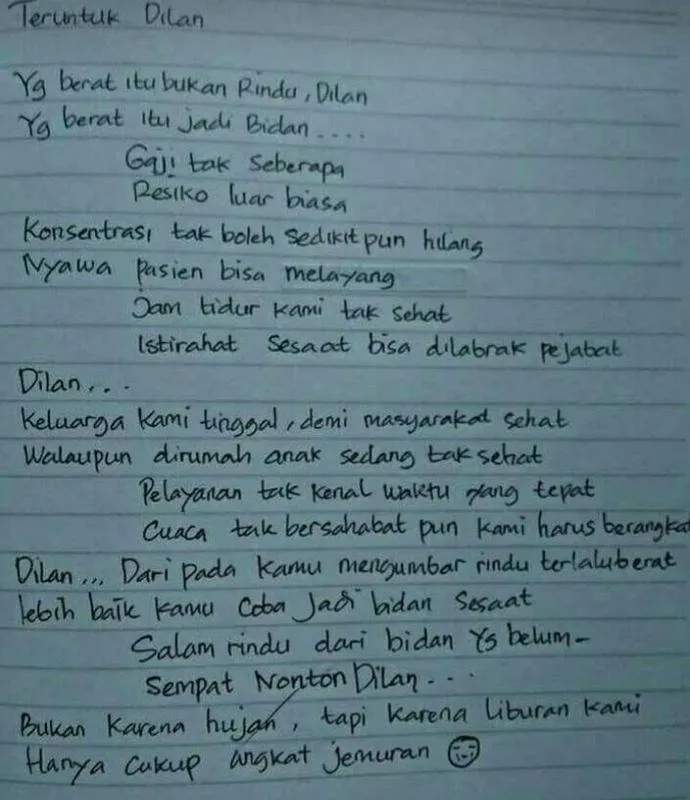 Teruntuk Dilan
Yg berat itu bukan Rindu, Dilan
Yg berat itu jadi Bidan ....
Gaji tak seberapa
Resiko luar biasa
Konsentrasi tak boleh sedikit pun hilang
Nyawa pasien bisa melayang
Jam tidur kami tak sehat
Istirahat sesaat bisa dilabrak pejabat
Dilan...
Keluarga kami tinggal, demi masyarakat sehat
Walaupun dirumah anak sedang tak sehat
Pelayanan tak kenal waktu yang tepat
Cuaca tak bersahabat pun kami harus berangkat
Dilan... Dari pada kamu mengumbar rindu terlalu berat
lebih baik kamu coba Jadi bidan sesaat
Salam rindu dari bidan Yg belum-
Sempat Nonton Dilan...
Bukan karena hujan, tapi karena liburan kami
Hanya cukup angkat jemuran